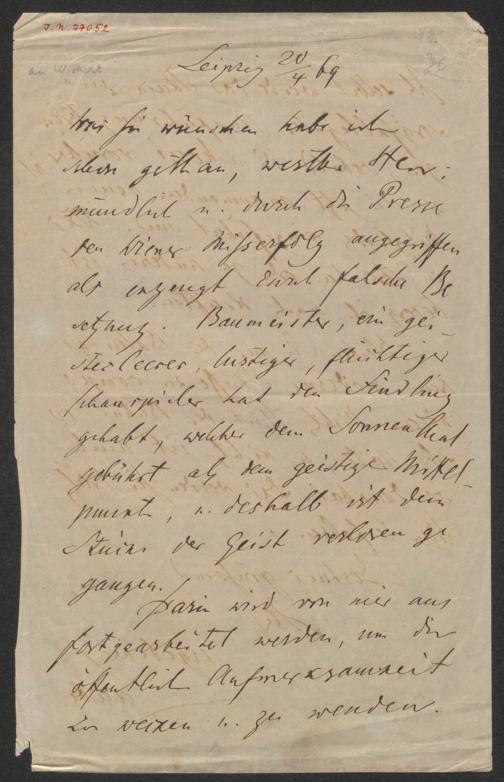 J. N. 77052
an Wehert
Leipzig 20/4 69
Was Sie wünschen habe ich
schon gethan, werther Herr:
mündlich u. durch die Presse
den Wiener Mißerfolg angegriffen
als erzeugt durch falsche Be
setzung. Baumeister, ein gei-
sterleerer, lustiger, flüchtiger
Schauspieler hat den Findling
gehabt, welcher dem Sonnenthal
gebührt als dem geistige Mittel-
punkt, u. deshalb ist dem
Stücke der Geist verloren ge
gangen.
Darin wird von mir aus
fortgearbeitet werden, um die
öffentlich Aufmerksamkeit
zu wecken u. zu wenden.